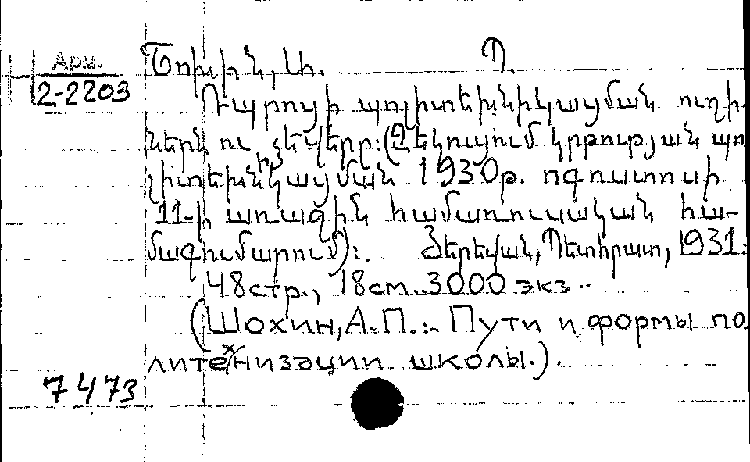 Арм. Շոխին, Ա. Պ.
2-2203
Դպրոցի պոլիտեխնիկացման ուղի-
ներն ու ձևերը: (Զեկուցում կրթության պո
լիտեխնիկացման 1930թ. օգոստոսի
11-ի առաջին համառուսական հա-
մագումարում): Յերեվան, Պետհրատ, 1931:
48стр., 18см. 3000 экз..
(Шохин, А.П.:- Пути и формы по
литехнизации школы.).
7473